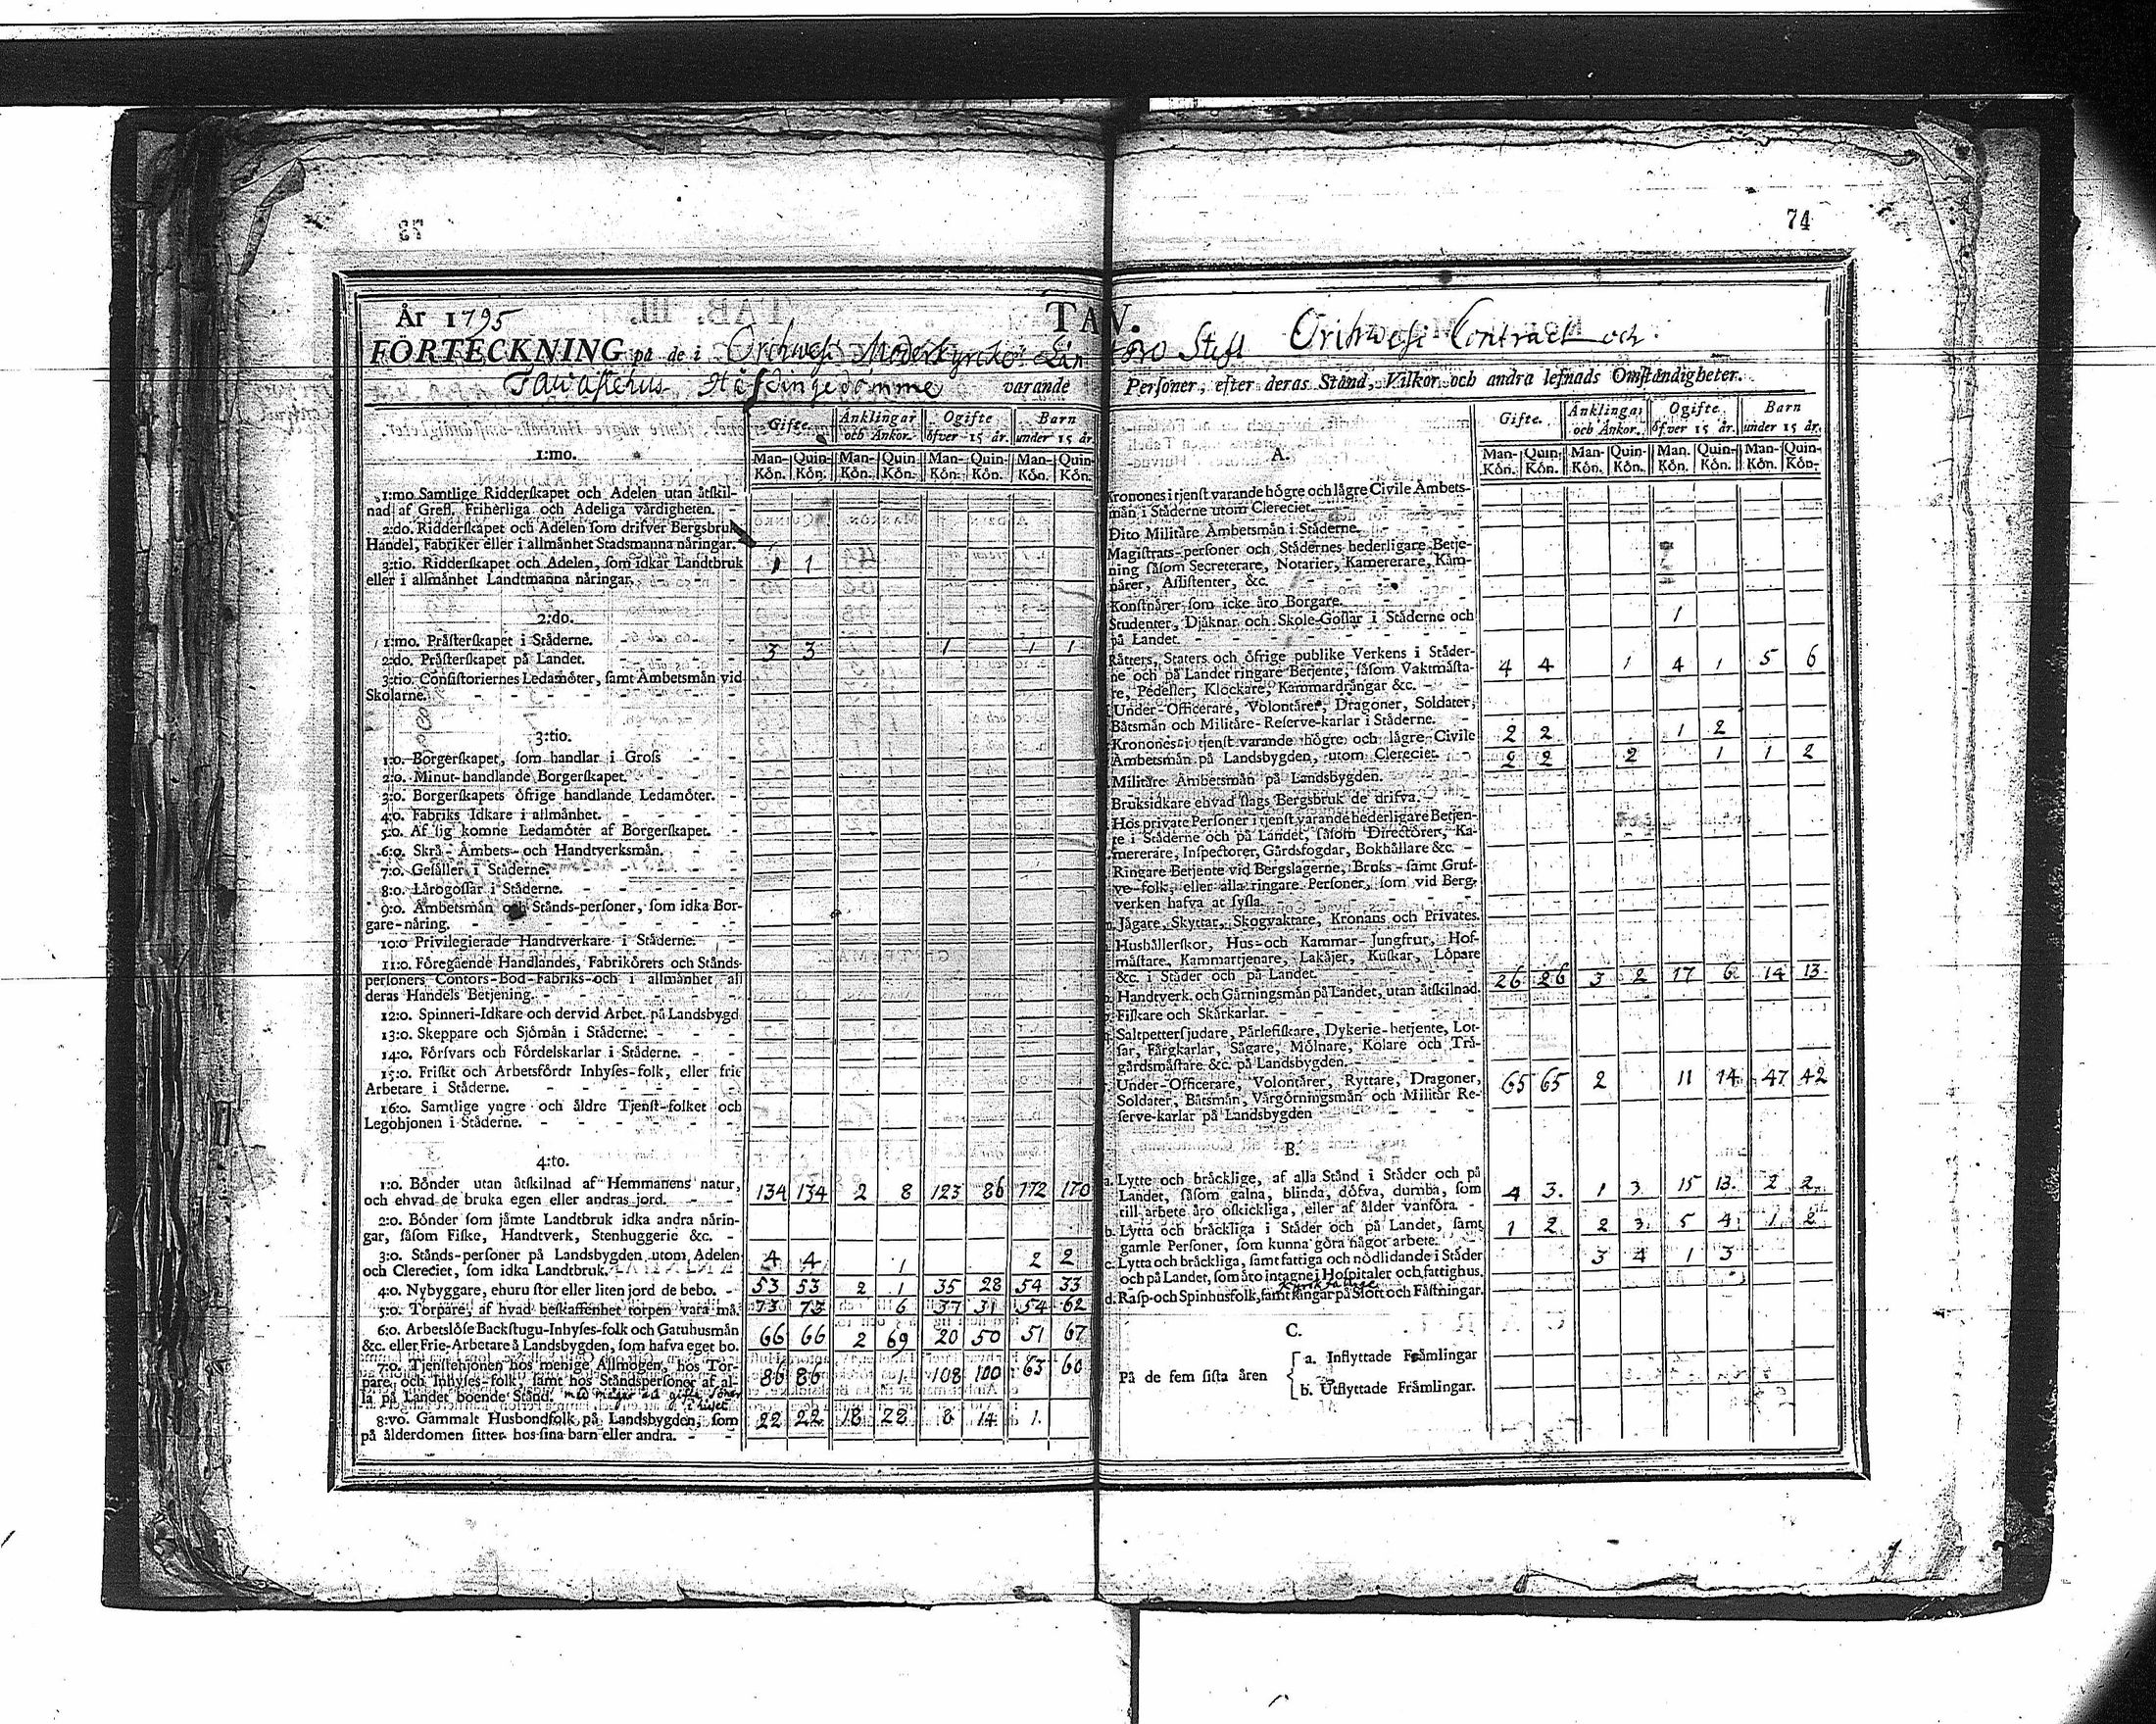 74
År 1795
TAV.
FÖRTECKNING på de i Orihwesi Moderkyrko Län Åbo Stift Orihwesi Contract och
Tawastehus Höfdingedömme varande Personer, efter deras Stånd, Vilkor och andra lefnads Omständigheter.
Gifte. Änklingar och Änkor. Ogifte öfver 15 år. Barn under 15 år.
1:mo.
Man-Kön. Quin-Kön. Man-Kön. Quin-Kön. Man-Kön. Quin-Kön. Man-Kön. Quin-Kön.
1:mo Samtlige Ridderskapet och Adelen utan åtskil-
nad af Grefl. Friherliga och Adeliga värdigheten. -
2:do. Ridderskapet och Adelen som drifver Bergsbruk
Handel, Fabriker eller i allmänhet Stadsmanna näringar.
3:tio. Ridderskapet och Adelen, som idkar Landtbruk 1 1
eller i allmänhet Landtmanna näringar.
2:do.
1:mo. Prästerskapet i Städerne.
2:do. Prästerskapet på Landet. 3 3 1 1 1
3:tio. Consistoriernes Ledamöter, samt Ämbetsmän vid
Skolarne.
3:tio.
1:o. Borgerskapet, som handlar i Gross
2:o. Minut-handlande Borgerskapet.
3:o. Borgerskapets öfrige handlande Ledamöter.
4:o. Fabriks Idkare i allmänhet.
5:o. Af sig komne Ledamöter af Borgerskapet.
6:o. Skrå-Ämbets- och Handtverksmän.
7:o. Gesäller i Städerne.
8:o. Lärogossar i Städerne.
9:o. Ämbetsmän och Stånds-personer, som idka Bor-
gare-näring.
10:o Privilegierade Handtverkare i Städerne.
11:o. Föregående Handlandes, Fabrikörers och Stånds-
personers Contors-Bod-Fabriks-och i allmänhet all
deras Handels Betjening.
12:o. Spinneri-Idkare och dervid Arbet. på Landsbygd
13:o. Skeppare och Sjömän i Städerne.
14:o. Försvars och Fördelskarlar i Städerne.
15:o. Friskt och Arbetsfördt Inhyses-folk, eller frie
Arbetare i Städerne.
16:o. Samtlige yngre och äldre Tjenst-folket och
Legohjonen i Städerne.
4:to.
1:o. Bönder utan åtskilnad af Hemmanens natur,
och ehvad de bruka egen eller andras jord. 134 134 2 8 123 86 172 170
2:o. Bönder som jämte Landtbruk idka andra närin-
gar, såsom Fiske, Handtverk, Stenhuggerie &c.
3:o. Stånds-personer på Landsbygden utom Adelen 4 4 1 2 2
och Clereciet, som idka Landtbruk.
4:o. Nybyggare, ehuru stor eller liten jord de bebo. 53 53 2 1 35 28 54 33
5:o. Torpare, af hvad beskaffenhet torpen vara må. 73 73 6 37 31 54 62
6:o. Arbetslöse Backstugu-Inhyses-folk och Gatuhusmän
&c. eller Frie-Arbetare å Landsbygden, som hafva eget bo. 66 66 2 69 20 50 51 67
7:o. Tjenstehjonen hos menige Allmogen, hos Tor-
pare och Inhyses-folk, samt hos Ståndspersoner af al- 86 86 1 108 100 63 60
la på Landet boende Stånd. med mågar och gifta söner i huset
8:vo. Gammalt Husbondfolk på Landsbygden, som 22 22 18 28 8 14 1
på ålderdomen sitter hos sina barn eller andra.
Gifte. Änklingar och Änkor. Ogifte öfver 15 år. Barn under 15 år.
A.
Man-Kön. Quin-Kön. Man-Kön. Quin-Kön. Man. Kön. Quin-Kön. Man-Kön. Quin-Kön.
Kronones i tjenst varande högre och lägre Civile Ämbets-
män i Städerne utom Clereciet.
Dito Militäre Ämbetsmän i Städerne.
Magistrats-personer och Städernes hederligare Betje-
ning såsom Secreterare, Notarier, Kamererare, Käm-
närer, Assistenter, &c.
Konstnärer som icke äro Borgare.
Studenter, Djäknar och Skole-Gossar i Städerne och 1
på Landet.
Rätters, Staters och öfrige publike Verkens i Städer-
ne och på Landet ringare Betjente, såsom Vaktmästa- 4 4 1 4 1 5 6
re, Pedeller, Klockare, Kammardrängar &c.
Under-Officerare, Volontärer, Dragoner, Soldater,
Båtsmän och Militäre-Reserve-karlar i Städerne.
Kronones i tjenst varande högre och lägre Civile 2 2 1 2
Ämbetsmän på Landsbygden, utom Clereciet. 2 2 2 1 1 2
Militäre Ämbetsmän på Landsbygden.
Bruksidkare ehvad slags Bergsbruk de drifva.
Hos private Personer i tjenst varande hederligare Betjen-
te i Städerne och på Landet, såsom Directörer, Ka-
mererare, Inspectorer, Gårdsfogdar, Bokhållare &c.
Ringare Betjente vid Bergslagerne, Bruks- samt Gruf-
ve-folk, eller alla ringare Personer, som vid Berg-
verken hafva at syssla.
Jägare, Skyttar, Skogvaktare, Kronans och Privates.
Hushållerskor, Hus- och Kammar-Jungfrur, Hof-
mästare, Kammartjenare, Lakäjer, Kuskar, Löpare
&c. i Städer och på Landet.
Handtverk. och Gärningsmän på Landet, utan åtskilnad. 26 26 3 2 17 6 14 13
Fiskare och Skärkarlar.
Saltpettersjudare, Pärlefiskare, Dykerie-betjente, Lot-
sar, Färgkarlar, Sågare, Mölnare, Kolare och Trä-
gårdsmästare &c. på Landsbygden.
Under-Officerare, Volontärer, Ryttare, Dragoner, 65 65 2 11 14 47 42
Soldater, Båtsmän, Vargörningsmän och Militär Re-
serve-karlar på Landsbygden
B.
a. Lytte och bräcklige, af alla Stånd i Städer och på
Landet, såsom galna, blinda, döfva, dumba, som 4 3 1 3 15 13 2 2
till arbete äro oskickliga, eller af ålder vanföra.
b. Lytta och bräckliga i Städer och på Landet, samt 1 2 2 3 5 4 1 2
gamle Personer, som kunna göra något arbete.
c. Lytta och bräckliga, samt fattiga och nödlidande i Städer 3 4 1 3
och på Landet, som äro intagne i Hospitaler och fattighus.
d. Rasp- och Spinhusfolk, samt fångar på Slott och Fästningar.
C.
På de fem sista åren
a. Inflyttade Främlingar
b. Utflyttade Främlingar.